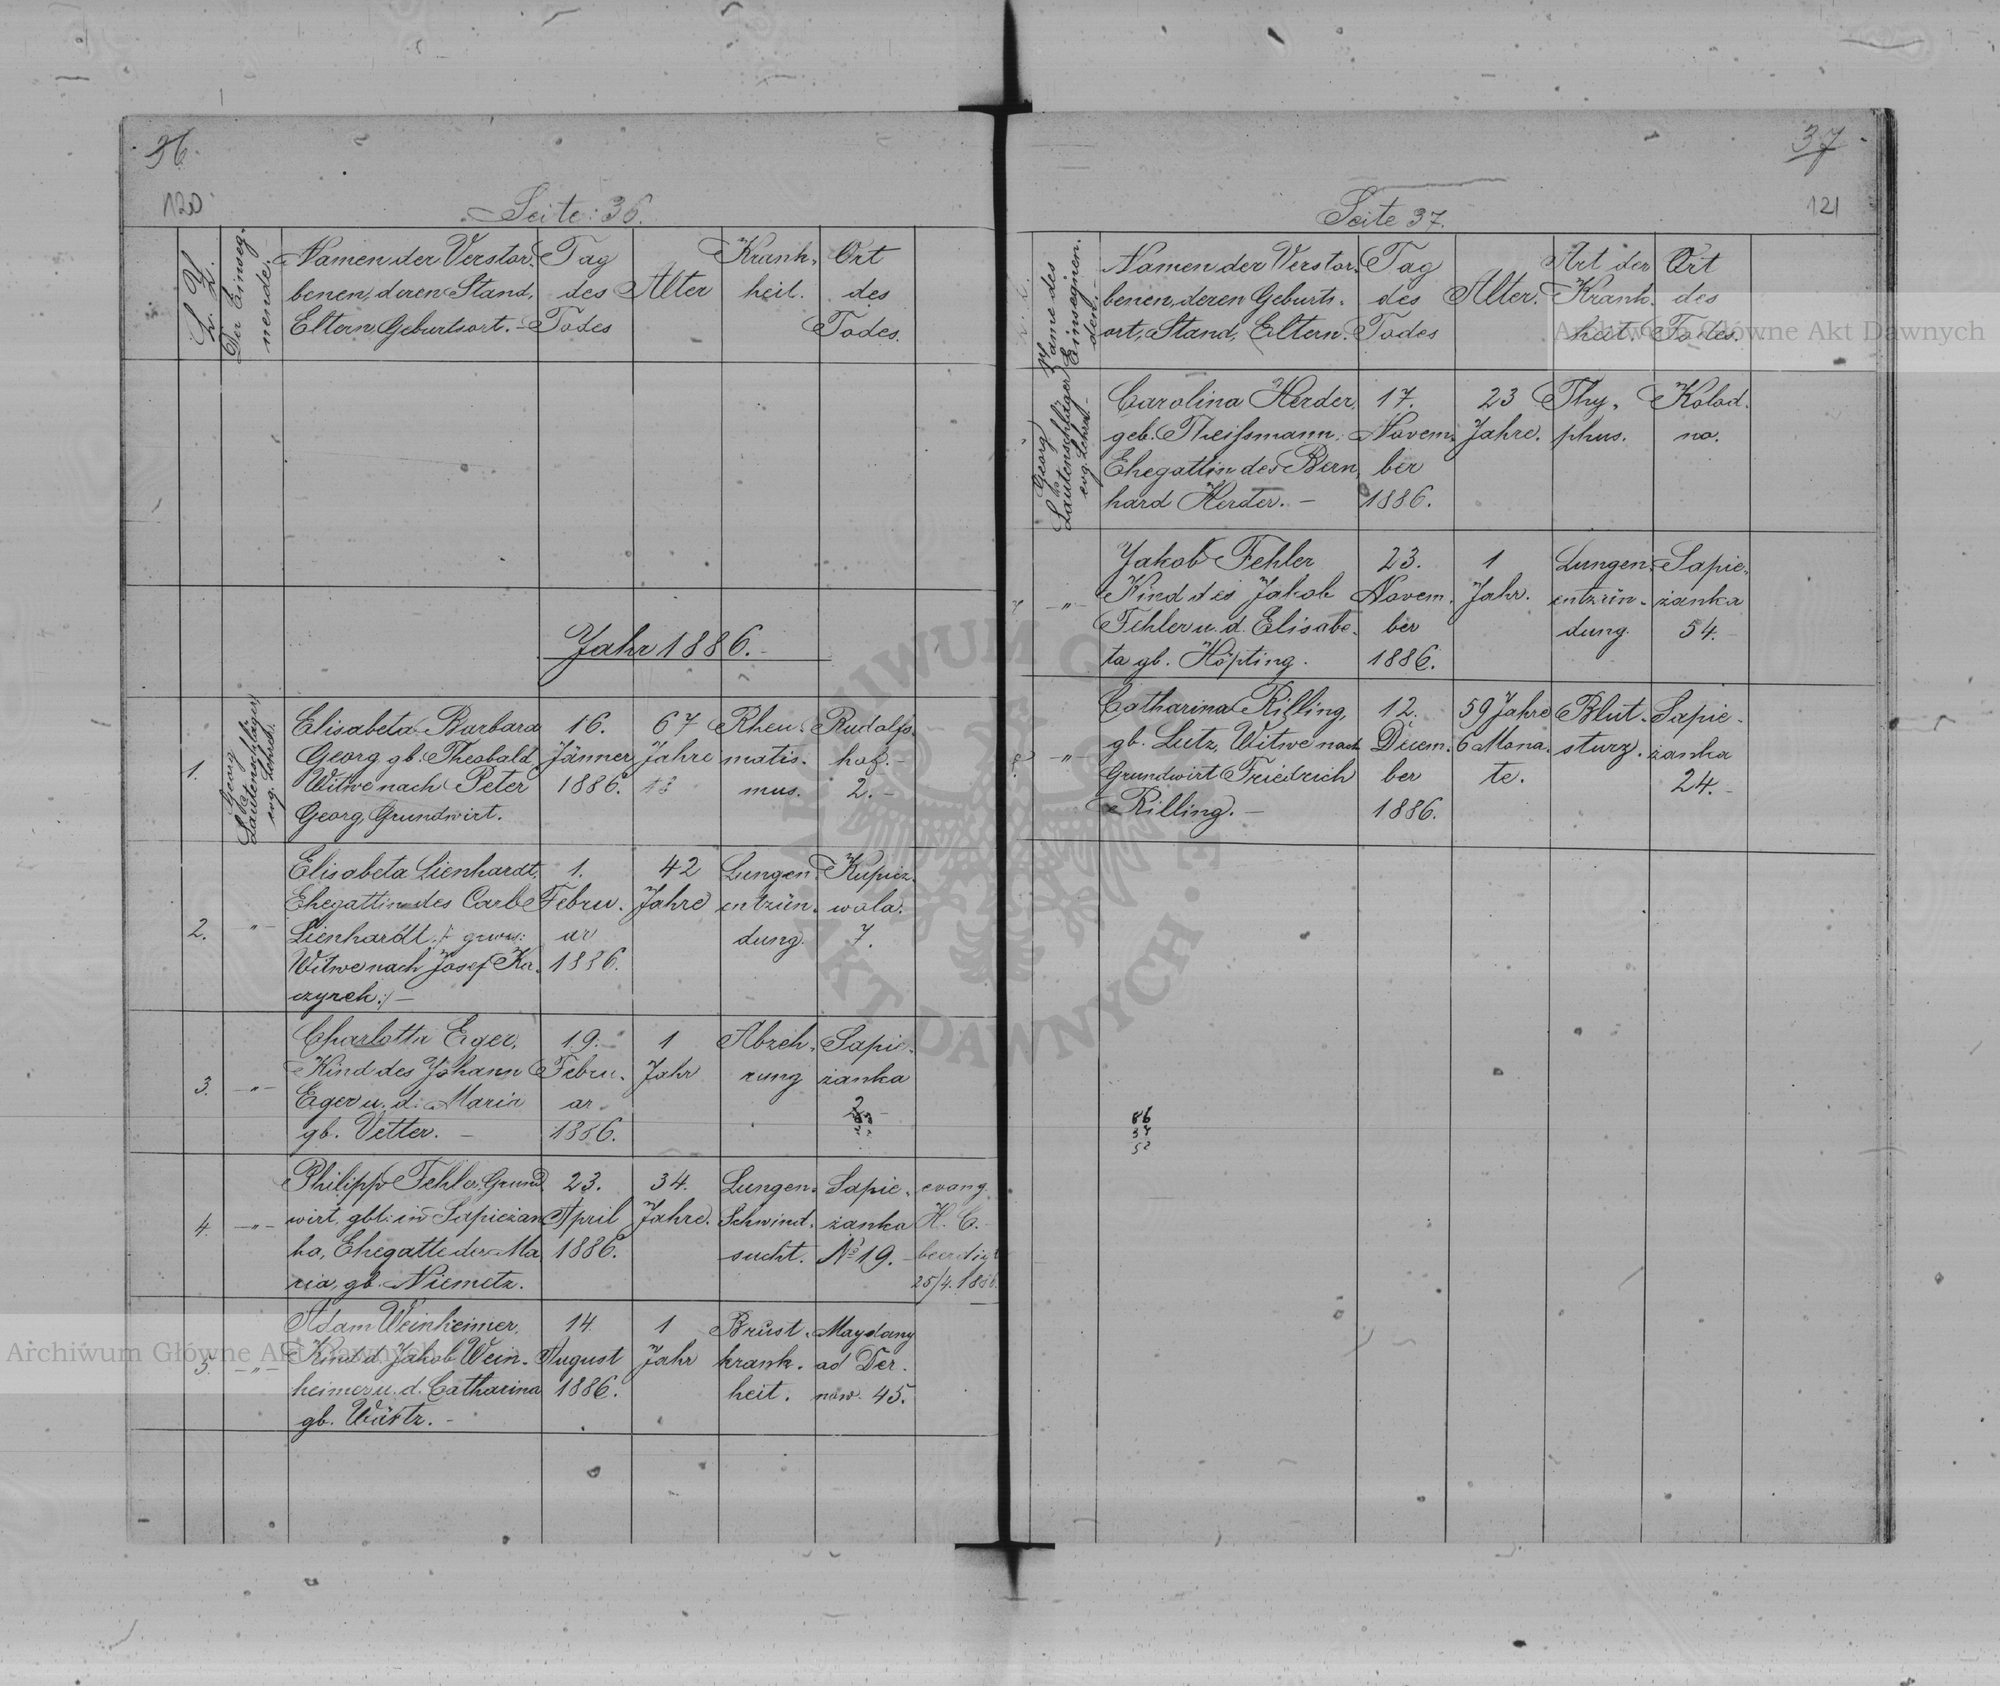 36.
120
Seite: 36.
L. Z.
Der Einseg-
nende.
Namen der Verstor-
benen, deren Stand,
Eltern, Geburtsort. -
Tag
des
Todes
Alter
Krank-
heit.
Ort
des
Todes.
Jahr 1886. -
1.
Georg
Lautenschläger
evg. Lehrer.
Elisabeta Barbara
Georg gb. Theobald
Witwe nach Peter
Georg, Grundwirt.
16.
Jänner
1886.
67
Jahre
Rheu-
matis-
mus.
Rudolfs-
hof. -
2. -
2.
-"-
Elisabeta Lienhardt,
Ehegattin des Carl
Lienhardt /: gewes:
Witwe nach Josef Ka-
czyrek :/ -
1.
Febru-
ar
1886.
42
Jahre
Lungen-
entzün-
dung.
Kupicz-
wola.
7.
3.
-"-
Charlotta Eger,
Kind des Johann
Eger u. d. Maria
gb. Vetter. -
19.
Febru-
ar
1886.
1
Jahr
Abzeh-
rung
Sapie-
żanka
4.
-"-
Philipp Fehler, Grund-
wirt, gbt. in Sapiezan-
ka, Ehegatte der Ma-
ria, gb. Niemetz.
23.
April
1886.
34.
Jahre.
Lungen-
Schwind-
sucht.
Sapie-
żanka
No 19. -
evang.
H. C.
beerdigt
25/4. 1886.
5.
-"-
Adam Weinheimer,
Kind d. Jakob Wein-
heimer u. d. Catharina
gb. Würtz. -
14
August
1886.
1
Jahr
Brust-
krank-
heit.
Maydany
ad Der-
now. 45.
37
121
Seite 37.
Name des
Einsegnen-
den. -
Namen der Verstor-
benen, deren Geburts-
ort, Stand, Eltern.
Tag
des
Todes
Alter.
Art der
Krank-
heit.
Ort
des
Todes.
Georg
Lautenschläger
evg. Lehrer. -
Carolina Herder,
geb. Theißmann,
Ehegattin des Bern-
hard Herder. -
17.
Novem-
ber
1886.
23
Jahre.
Thy-
phus.
Kolod-
no.
-"-
Jakob Fehler
Kind des Jakob
Fehler u. d. Elisabe-
ta gb. Höpting.
23.
Novem-
ber
1886.
1
Jahr.
Lungen-
entzün-
dung.
Sapie-
żanka
54. -
-"-
Catharina Rilling,
gb. Lutz, Witwe nach
Grundwirt Friedrich
Rilling. -
12.
Decem-
ber
1886.
59 Jahre
6 Mona-
te.
Blut-
sturz.
Sapie-
żanka
24. -
86
37
52
Archiwum Główne Akt Dawnych
Archiwum Główne Akt Dawnych